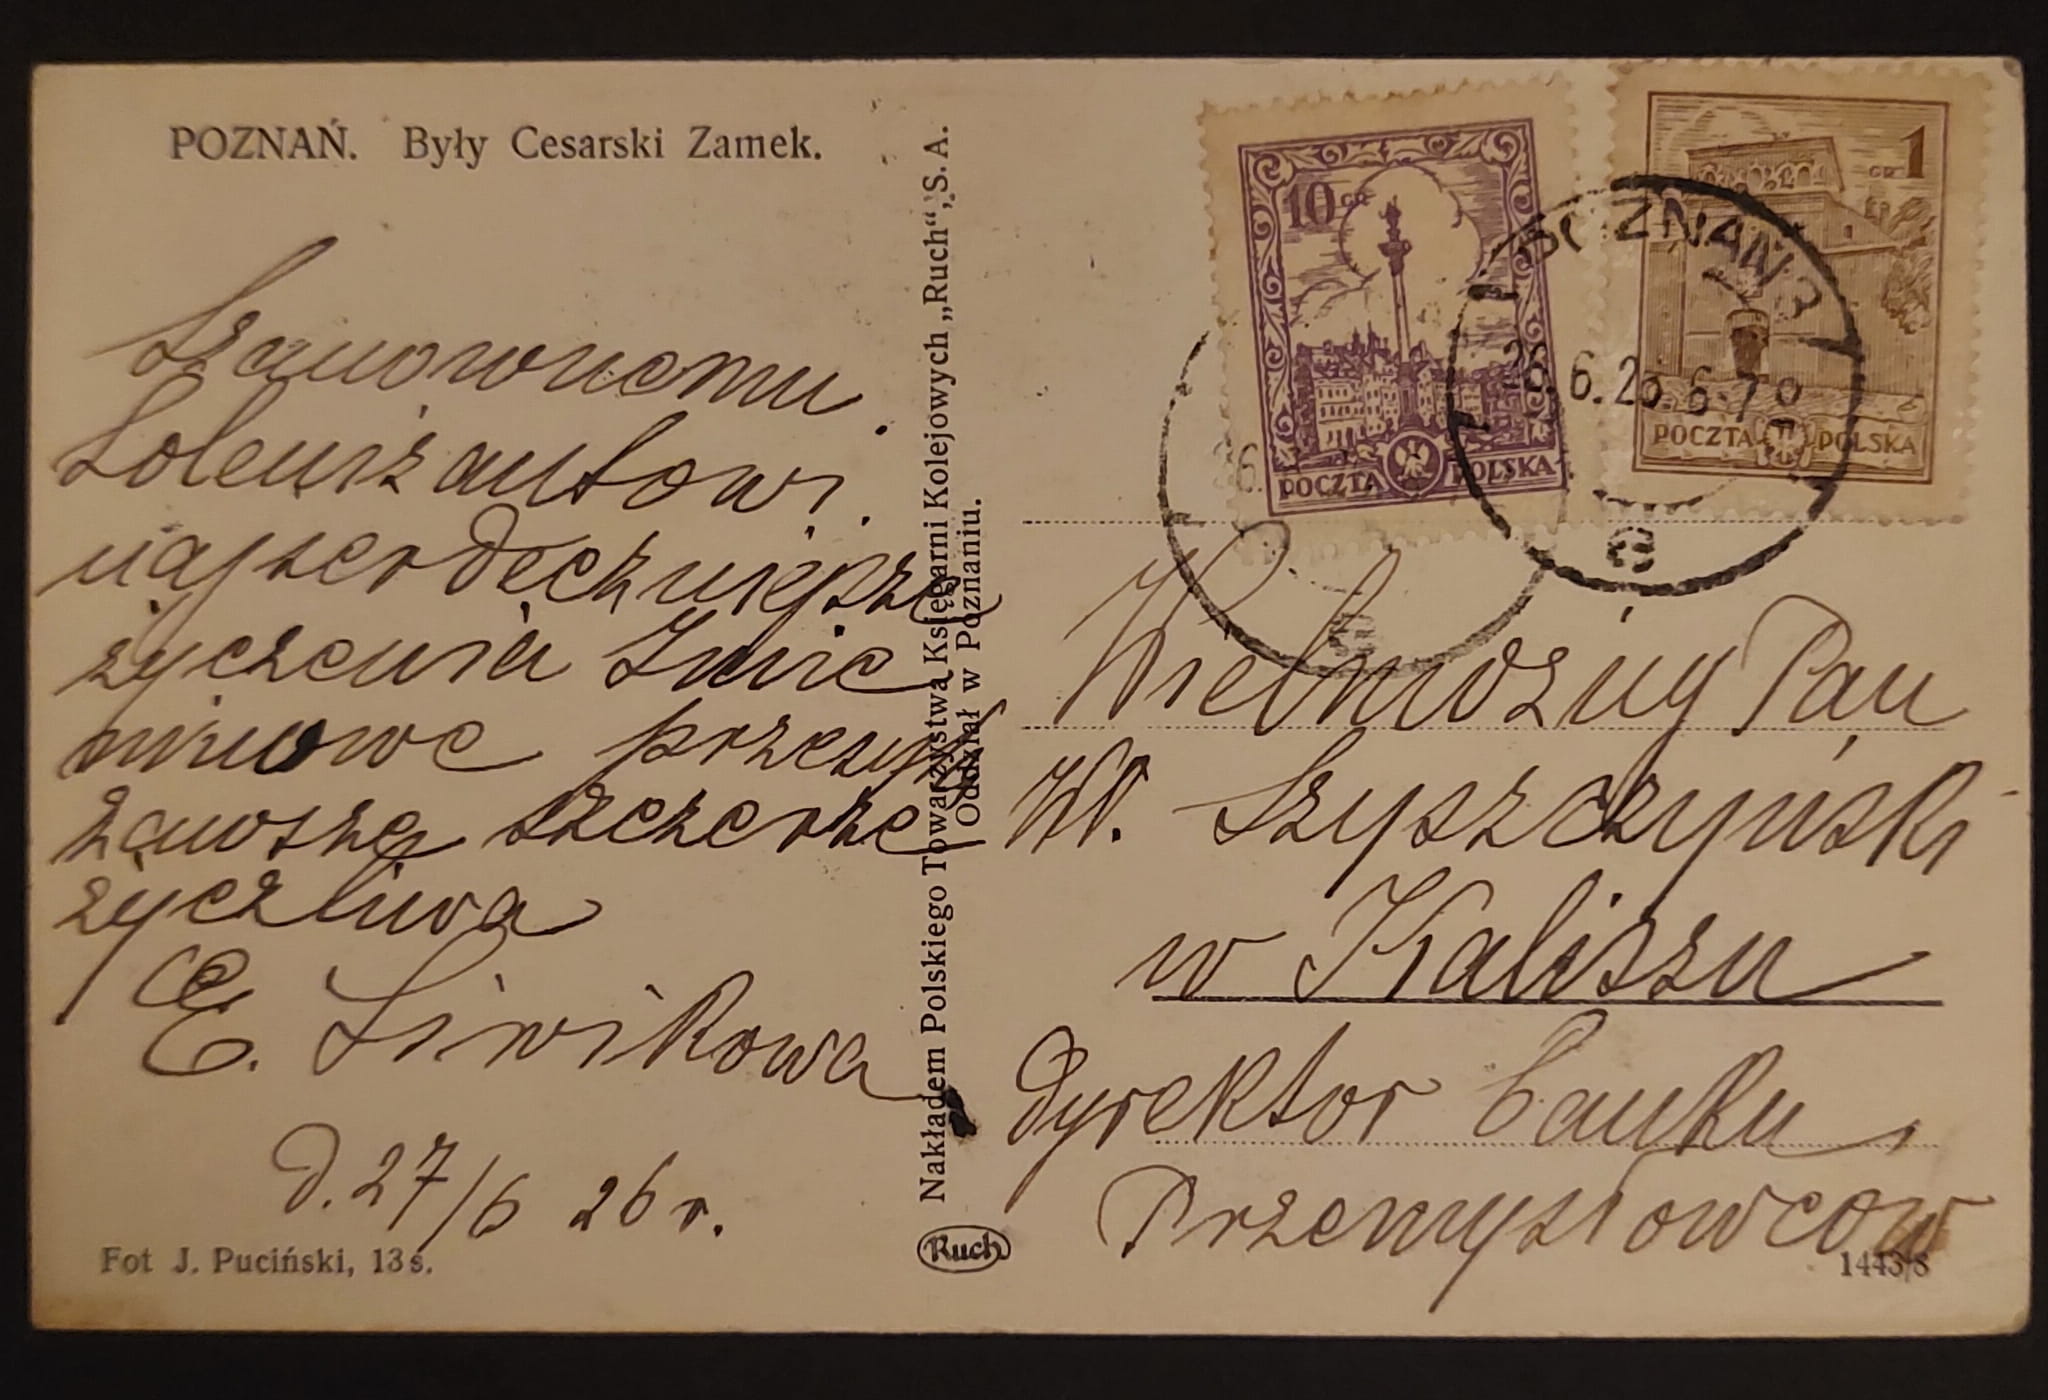 POZNAŃ. Były Cesarski Zamek.
Szanownemu
Solenizantowi
najserdeczniejsze
życzenia Imie
ninowe przesył
zawsze szczerze
życzliwa
E. Siwikowa
d. 27/6 26 r.
Fot J. Puciński, 13 s.
Nakładem Polskiego Towarzystwa Księgarni Kolejowych „Ruch", S. A.
Oddział w Poznaniu.
Ruch
10 GR
POCZTA POLSKA
GR 1
POCZTA POLSKA
POZNAŃ 3
26.6.26.6-7
Wielmożny Pan
Wł. Szyszczyński
w Kaliszu
Dyrektor banku
Przemysłowców
1443/8